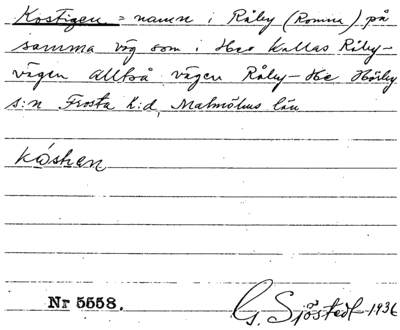 Kostigen = namn i Råby (Romin.) på
samma väg som i Heo kallas Råby-
vägen alltså vägen Råby–He Hörby
s:n Frosta h:d, Malmöhus län
Nr 5558.
G. Sjöstedt 1936